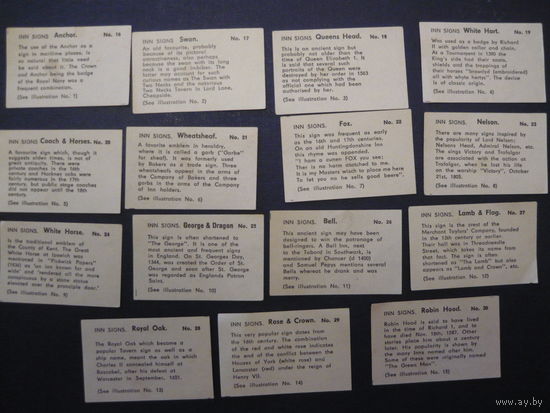 INN SIGNS. Anchor. No. 16
The use of the Anchor as a
sign in maritime places, is
so natural that little need
be said about it. The Crown
and Anchor being the badge of
the Royal Navy was a
frequent combination.
(See illustration No. 1)
INN SIGNS. Swan. No. 17
An old favourite, probably
because of its pictur-
esqueness, also perhaps
because the swan with its long
neck is a good imbiber. The
latter may account for such
curious names as The Swan with
Two Necks and the notorious
Two Necks Tavern in Lord Lane,
Cheapside.
(See illustration No. 2)
INN SIGNS. Queens Head. No. 18
This is an ancient sign but
probably dates from the time
of Queen Elizabeth 1. It
is said that several such
portraits of the Queen were
destroyed by her order in 1563
as not complying with the
official one which had been
authorised by her.
(See illustration No. 3)
INN SIGNS. White Hart. No. 19
Was used as a badge by Richard
II with golden collar and chain.
At a Tournament in 1390 the
King's side had their coats,
shields and the trappings of
their horses "browled (embroidered)
all with whyte hertys". The device
is of classic origin.
(See illustration No. 4)
INN SIGNS. Coach & Horses. No. 20
A favourite sign which, though it
suggests olden times, is not
of great antiquity. There were
private coaches in the 16th
century and Hackney cabs were
fairly numerous in the 17th
century, but public stage coaches
did not appear until the 18th
century.
(See illustration No. 5)
INN SIGNS. Wheatsheaf. No. 21
A favourite emblem in heraldry,
where it is called a garb ("Garbe"
for sheaf). It was formerly used
by Bakers as a trade sign. Three
wheatsheafs appear in the arms
of the Company of Bakers and three
garbs in the arms of the Company
of Inn holders.
(See illustration No. 6)
INN SIGNS. Fox. No. 22
This sign was frequent as early
as the 16th and 17th centuries.
On an old Huntingdonshire Inn
this rhyming verse appeared:
"I ham a cunen FOX you see
Ther is no harm atatched to me.
It is my Masters wich to place me here
To let you no he sells good beere".
(See illustration No. 7)
INN SIGNS. Nelson. No. 23
There are many signs inspired
by the popularity of Lord Nelson;
Nelsons Head, Admiral Nelson, etc.
The sings Victory and Trafalgar
are associated with the action at
Trafalgar, when he lost his life
on the warship "Victory", October
21st. 1805.
(See illustration No. 8)
INN SIGNS. White Horse. No. 24
Is the traditional emblem of
the County of Kent. The Great
White Horse at Ipswich was
mentioned in "Pickwick Papers"
(1836) as "an inn known far and
wide" and "rendered all the more
conspicuous by a stone statue
elevated over the principle door."
(See illustration No. 9)
INN SIGNS. George & Dragon No. 25
This sign is often shortened to
"The George". It is one of the
most ancient and frequent signs
in England. On St. Georges Day,
1344, was created the Order of St.
George and soon after St. George
was regarded as Englands Patron
Saint.
(See illustration No. 10)
INN SIGNS. Bell. No. 26
This ancient sign may have been
designed to win the patronage of
bell-ringers. A Bell Inn, next
to the Tabard in Southwark, is
mentioned by Chaucer (d 1400)
and Samuel Pepys mentions several
Bells whereat he drank and was
merry.
(See illustration No. 11)
INN SIGNS. Lamb & Flag. No. 27
This sign is the crest of the
Merchant Taylors' Company, founded
in the 13th century or earlier.
Their hall was in Threadneedle
Street, which takes its name from
that Tailors. The sign is often
shortened to "The Lamb" but also
appears as "Lamb and Crown", etc.
(See illustration No. 12)
INN SIGNS. Royal Oak. No. 28
The Royal Oak which became a
popular Tavern sign as well as a
ship name, meant the oak in which
Charles II concealed himself at
Boscobel, after his defeat at
Worcester in September, 1651.
(See illustration No. 13)
INN SIGNS. Rose & Crown. No. 29
This very popular sign dates from
the 16th century. The combination
of the red and white rose indicates
the end of the conflict between the
Houses of York (white rose) and
Lancaster (red) under the reign of
Henry VII.
(See illustration No. 14)
INN SIGNS. Robin Hood. No. 30
Robin Hood is said to have lived
in the time of Richard 1, and to
have died Nov. 18th, 1287. Other
stories place him about a century
later. His popularity is shown by
the many Inns named after him.
Some of these were originally named
"The Green Man".
(See illustration No. 15)
www.ay.by